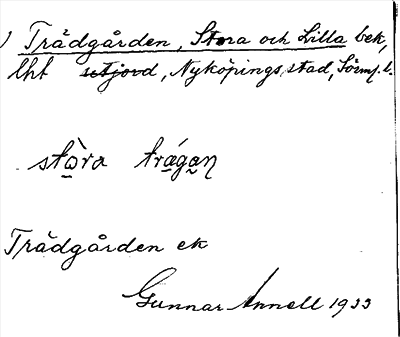 ) Trädgården, Stora och Lilla bek,
lht utjord, Nyköpings stad, Sörml. l.
stò̱ra trá̱ga̱n
Trädgården ek
Gunnar Annell 1933